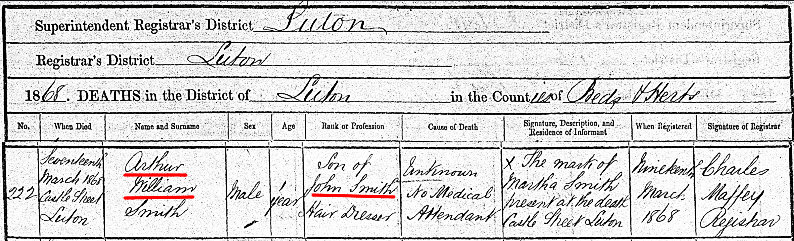 Superintendent Registrar's District Luton
Registrar's District Luton
1868. DEATHS in the District of Luton in the Counties of Beds & Herts
No. When Died Name and Surname Sex Age Rank or Profession Cause of Death Signature, Description, and Residence of Informant When Registered Signature of Registrar
222
Seventeenth
March 1868
Castle Street
Luton
Arthur
William
Smith
Male
1 year
Son of
John Smith
Hair Dresser
Unknown
No Medical
Attendant
X The mark of
Martha Smith
present at the death
Castle Street Luton
Nineteenth
March
1868
Charles
Maffey
Registrar